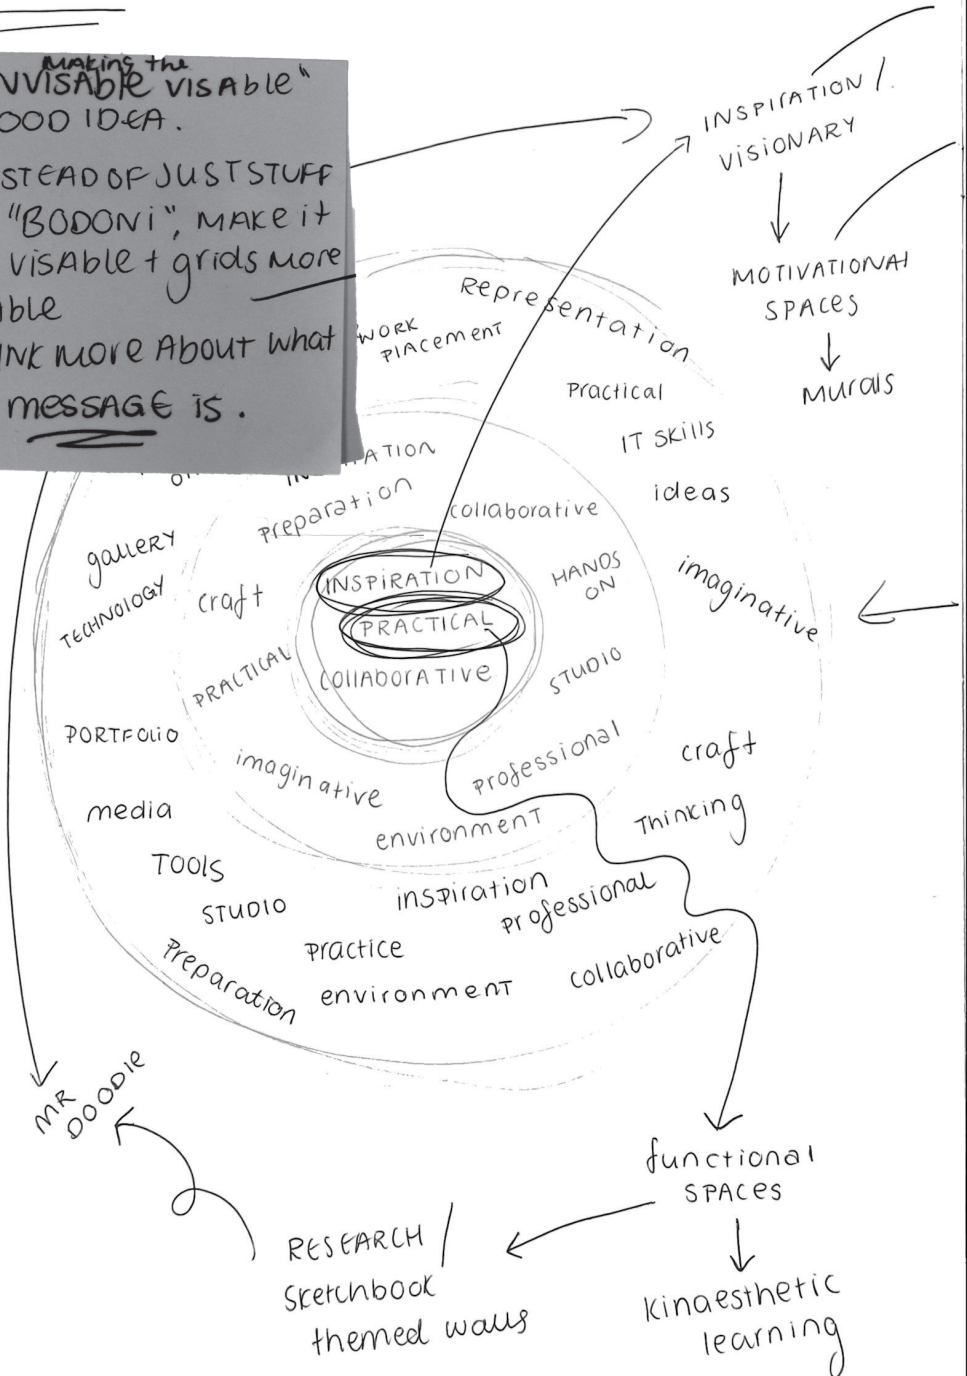 MAKing the
VVISABLE VISABLE"
OOD IDEA.
STEAD OF JUST STUFF
"BODONi", MAKE it
VISABLE + grids more
ble
INK more About what
MESSAGE is.
INSPIRATION /
VISIONARY
MOTIVATIONAL
SPACES
Murals
Representation
WORK
PLACEMENT
Practical
IT SKILLS
ideas
imaginative
ATION
Preparation
collaborative
HANDS
ON
gallery
TECHNOLOGY
craft
INSPIRATION
PRACTICAL
COllABORATIVE
PRACTICAL
STUDIO
PORTFOLIO
imaginative
professional
environment
craft
Thinking
media
TOOLS
STUDIO
inspiration
professional
Preparation
Practice
environment
collaborative
MR
DOODLE
functional
SPACES
RESEARCH /
Sketchbook
themed walls
Kinaesthetic
learning